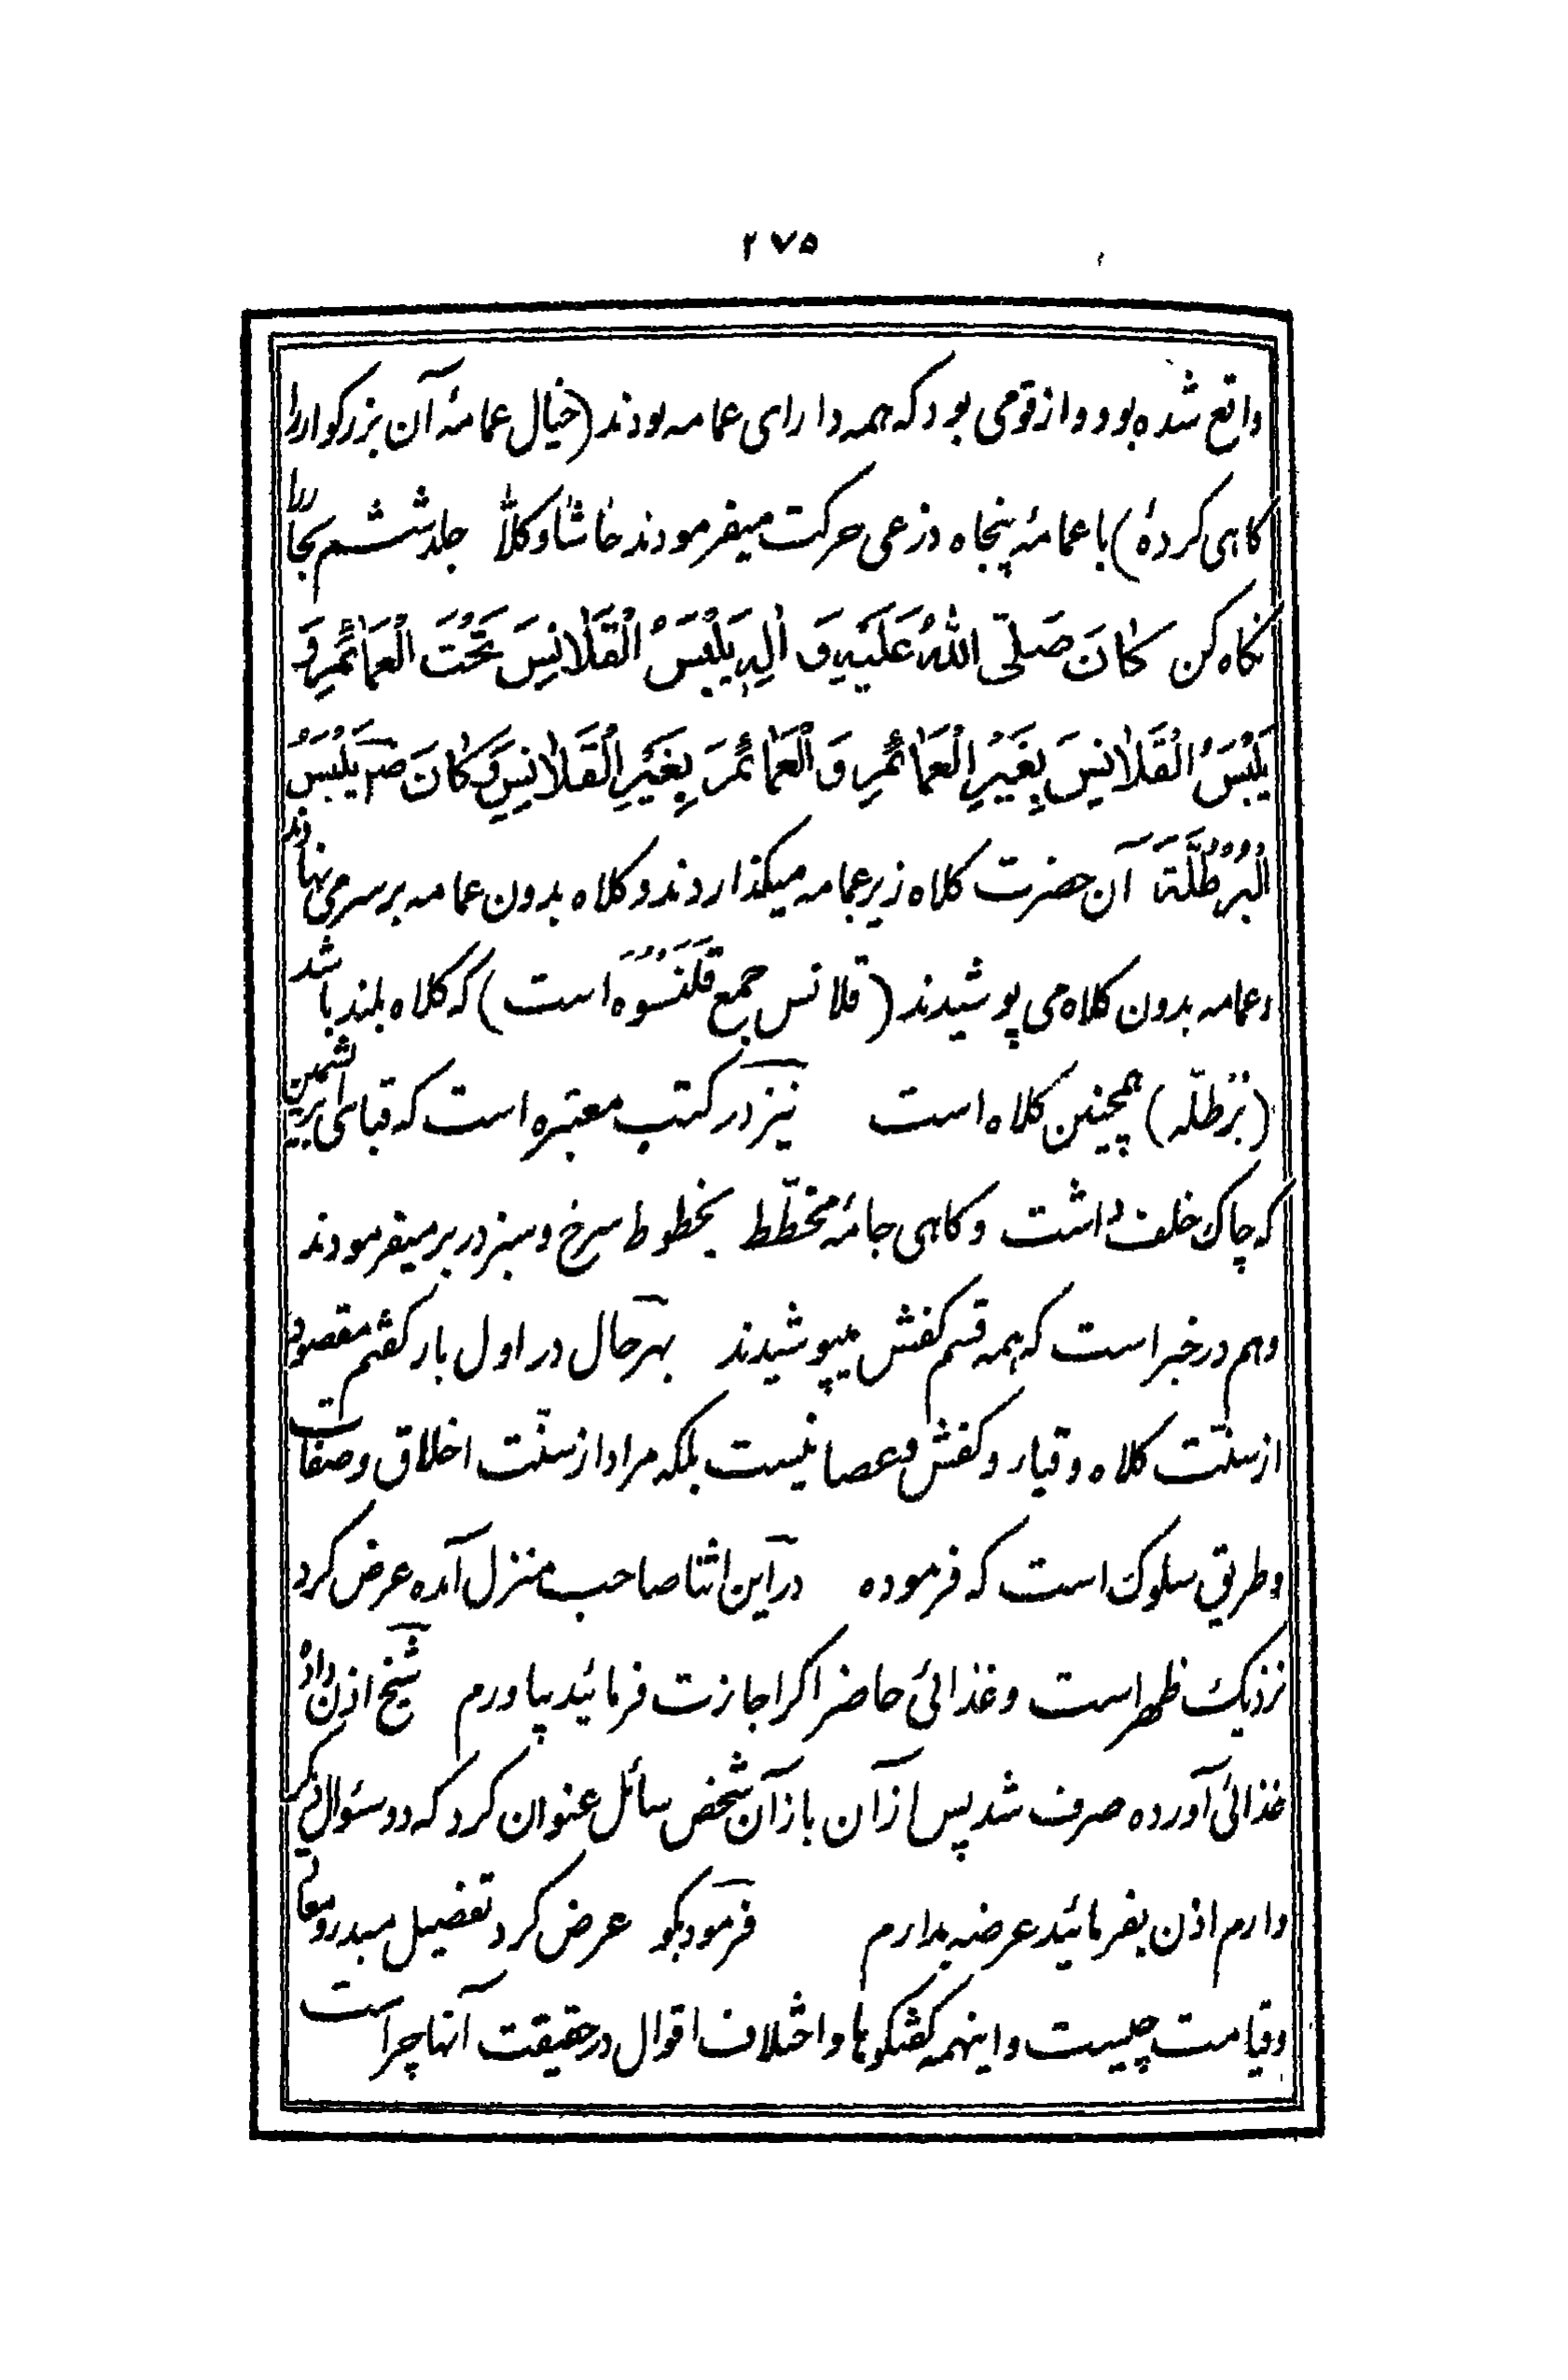 ۲۷۵
واقع شده بود و از قومی بود که همه دارای عمامه بودند (خیال عمامهٔ آن بزرکوار را
کاهی کردهٔ) با عمامهٔ پنجاه ذرعی حرکت میفرمودند حٰاشٰا و کلّٰا جلد ششم بحار را
نکاه کن کٰانَ صَلَّی اللّٰهُ عَلَیْهِ وَ اٰلِهِ یَلْبَسُ الْقَلٰانِسَ تَحْتَ الْعَمٰائِمِ وَ
یَلْبَسُ الْقَلٰانِسَ بِغَیْرِ الْعَمٰائِمِ وَ الْعَمٰائِمَ بِغَیْرِ الْقَلٰانِسِ وَ کٰانَ صٓ یَلْبَسُ
الْبُرْطُلَّةَ آن حضرت کلاه زیر عمامه میکذاردند و کلاه بدون عمامه بر سر می نهادند
و عمامه بدون کلاه می پوشیدند (قلانس جمع قَلَنْسُوَه است) که کلاه بلند باشد
(بُرْطلّه) همچنین کلاه است نیز در کتب معتبره است که قبای ابریشمین
که چاک خلف داشت و کاهی جامهٔ مخطّط بخطوط سرخ و سبز در بر میفرمودند
و هم در خبر است که همه قسم کفش میپوشیدند بهرحال در اول بار کفتم مقصود
از سنّت کلاه و قبا و کفش و عصا نیست بلکه مراد از سنّت اخلاق و صفات
و طریق سلوک است که فرموده در این اثنا صاحب منزل آمده عرض کرد
نزدیک ظهر است و غذائی حاضر اکر اجازت فرمائید بیاورم شیخ اذن داد
غذائی آورده صرف شد پس از آن باز آن شخص سائل عنوان کرد که دو سئوال دیکر
دارم اذن بفرمائید عرضه بدارم فرمود بکو عرض کرد تفضیل مبدء و معاد
و قیامت چیست و اینهمه کفتکوها و اختلاف اقوال در حقیقت آنها چراست